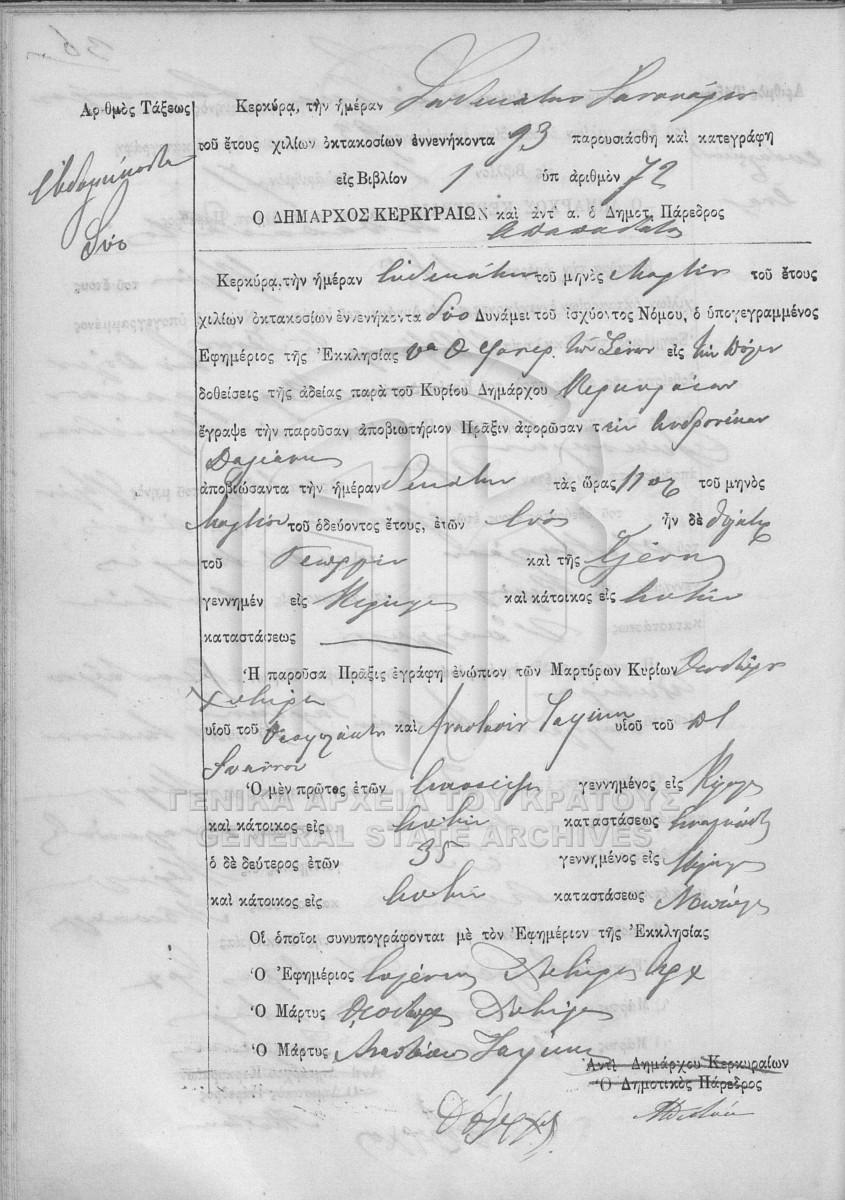 Αριθμὸς Τάξεως
Ἑβδομήκοντα
δύο
Κερκύρα, τὴν ἡμέραν Δωδεκάτην Ἰανουαρίου
τοῦ ἔτους χιλίων ὀκτακοσίων ἐννενήκοντα 93 παρουσιάσθη καὶ κατεγράφη
εἰς Βιβλίον 1 ὑπ ἀριθμὸν 72
Ο ΔΗΜΑΡΧΟΣ ΚΕΡΚΥΡΑΙΩΝ καὶ ἀντ' α. ὁ Δημοτ. Πάρεδρος
Κερκύρα, τὴν ἡμέραν ἑνδεκάτην τοῦ μηνὸς Μαρτίου τοῦ ἔτους
χιλίων ὀκτακοσίων ἐννενήκοντα δύο Δυνάμει τοῦ ἰσχύοντος Νόμου, ὁ ὑπογεγραμμένος
Ἐφημέριος τῆς Ἐκκλησίας Υ Θ Φανερ. τῶν Ξένων εἰς τὴν Πόλιν
δοθείσεις τῆς ἀδείας παρὰ τοῦ Κυρίου Δημάρχου Κερκυραίων
ἔγραψε τὴν παροῦσαν ἀποβιωτήριον Πρᾶξιν ἀφορῶσαν τὴν Ἀνδρονίκην
ἀποβιώσαντα τὴν ἡμέραν δεκάτην τὰς ὥρας 11 τοῦ μηνὸς
Μαρτίου τοῦ ὁδεύοντος ἔτους, ἐτῶν ἑνός ἦν δὲ θυγάτηρ
τοῦ Γεωργίου καὶ τῆς Ἑλένης
γεννημέν εἰς Κέρκυρα καὶ κάτοικος εἰς αὐτὴν
καταστάσεως
Ἡ παροῦσα Πρᾶξις ἐγράφη ἐνώπιον τῶν Μαρτύρων Κυρίων Θεοδώρου
υἱοῦ τοῦ Θεοφυλάκτου καὶ Ἀναστασίου υἱοῦ τοῦ
Ἰωάννου
Ὁ μὲν πρῶτος ἐτῶν γεννημένος εἰς Κέρκυρα
καὶ κάτοικος εἰς αὐτὴν καταστάσεως
ὁ δὲ δεύτερος ἐτῶν 35 γεννημένος εἰς Κέρκυρα
καὶ κάτοικος εἰς αὐτὴν καταστάσεως
Οἱ ὁποῖοι συνυπογράφονται μὲ τὸν Ἐφημέριον τῆς Ἐκκλησίας
Ὁ Ἐφημέριος Εὐγένιος
Ὁ Μάρτυς Θεόδωρος
Ὁ Μάρτυς Ἀναστάσιος
Ἀντὶ Δημάρχου Κερκυραίων
Ὁ Δημοτικὸς Πάρεδρος
ΓΕΝΙΚΑ ΑΡΧΕΙΑ ΤΟΥ ΚΡΑΤΟΥΣ
GENERAL STATE ARCHIVES